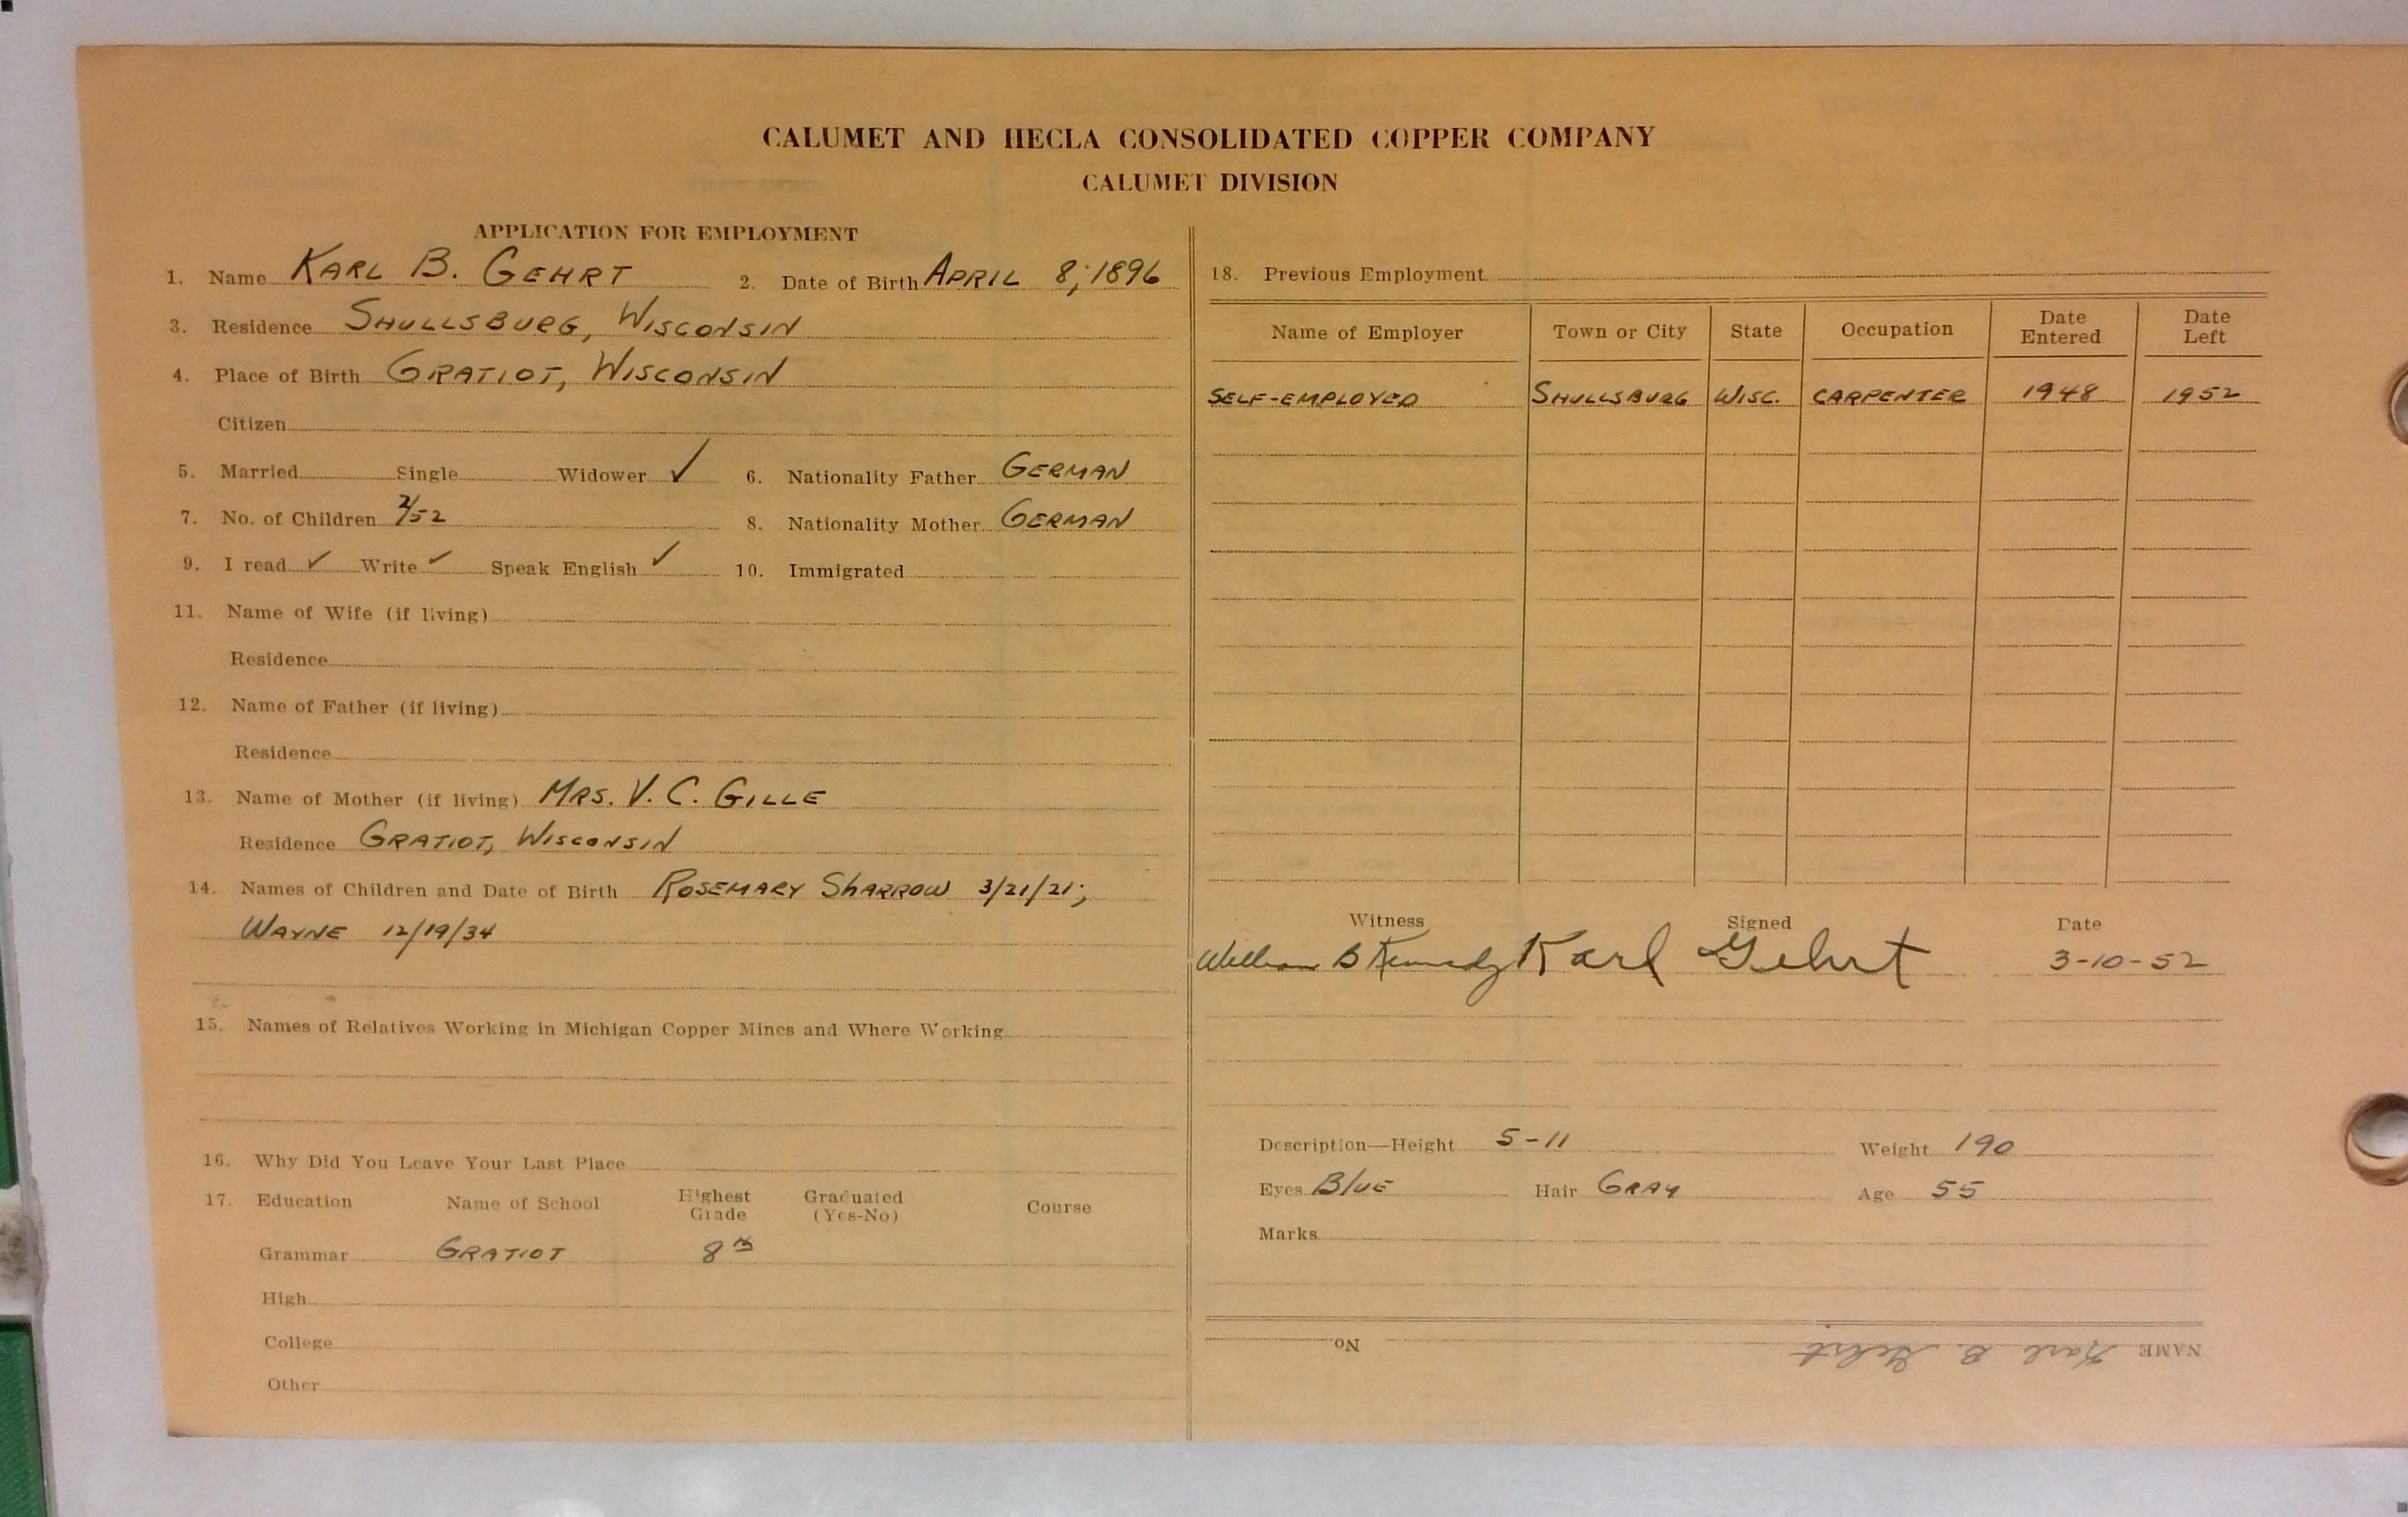 CALUMET AND HECLA CONSOLIDATED COPPER COMPANY
CALUMET DIVISION
APPLICATION FOR EMPLOYMENT
1. Name KARL B. GEHRT 2. Date of Birth APRIL 8, 1896
3. Residence SHULLSBURG, WISCONSIN
4. Place of Birth GRATIOT, WISCONSIN
Citizen
5. Married Single Widower ✓ 6. Nationality Father GERMAN
7. No. of Children 2/52 8. Nationality Mother GERMAN
9. I read ✓ Write ✓ Speak English ✓ 10. Immigrated
11. Name of Wife (if living)
Residence
12. Name of Father (if living)
Residence
13. Name of Mother (if living) MRS. V. C. GILLE
Residence GRATIOT, WISCONSIN
14. Names of Children and Date of Birth ROSEMARY SHARROW 3/21/21;
WAYNE 12/19/34
15. Names of Relatives Working in Michigan Copper Mines and Where Working
16. Why Did You Leave Your Last Place
17. Education Name of School Highest Grade Graduated (Yes-No) Course
Grammar GRATIOT 8th
High
College
Other
18. Previous Employment
Name of Employer Town or City State Occupation Date Entered Date Left
SELF-EMPLOYED SHULLSBURG WISC. CARPENTER 1948 1952
Witness Signed Date
William B Kennedy Karl Gehrt 3-10-52
Description—Height 5-11 Weight 190
Eyes BLUE Hair GRAY Age 55
Marks
NAME Karl B. Gehrt No.